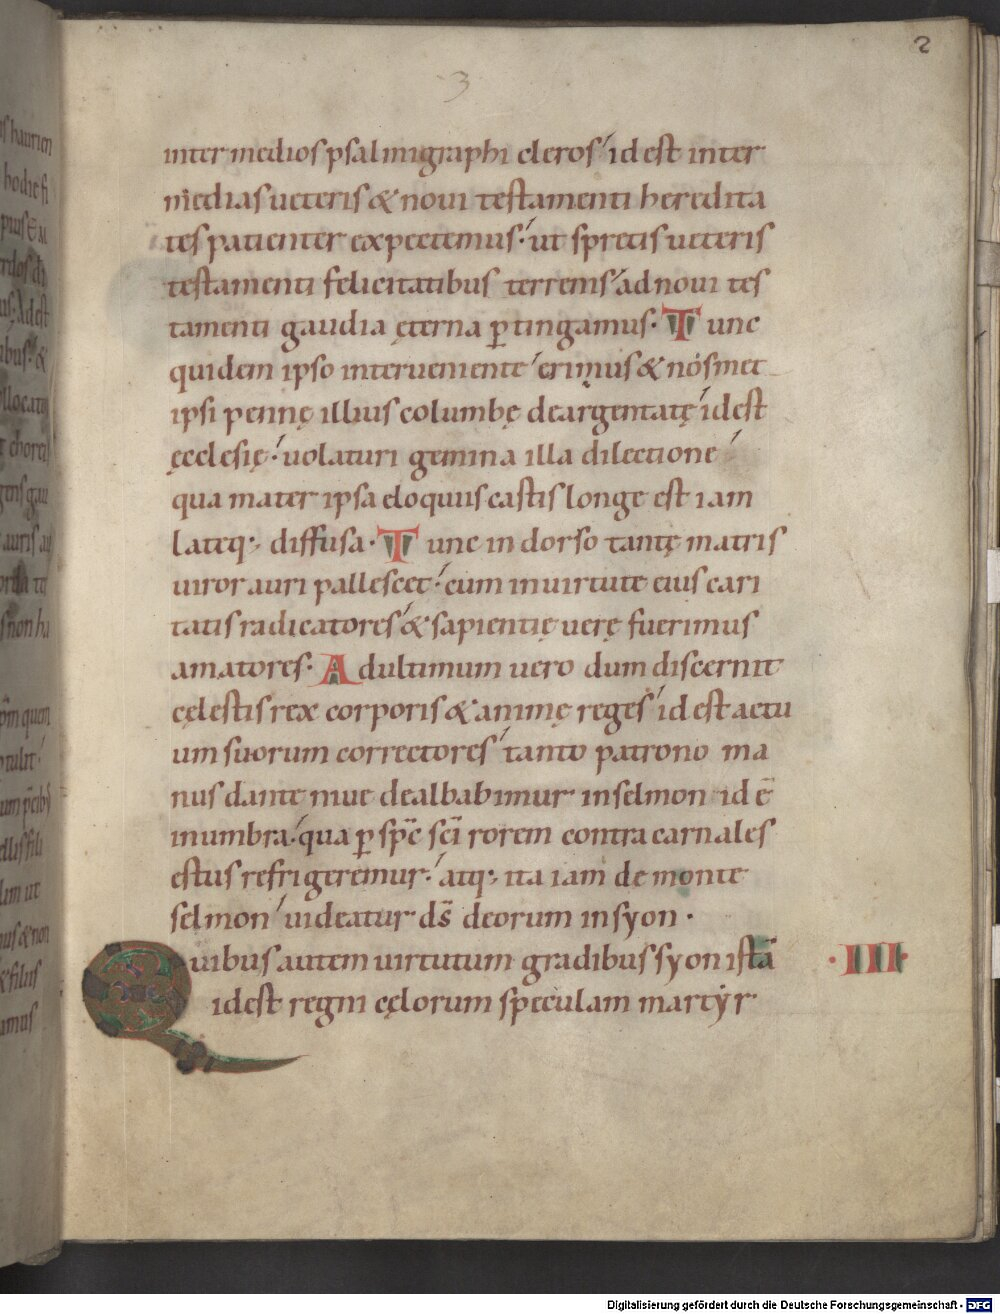 2
3
inter medios psalmigraphi cleros id est inter
medias ueteris & noui testamenti heredita
tes patienter expectemus· ut spretis ueteris
testamenti felicitatibus terrenis ad noui tes
tamenti gaudia ęterna ꝑtingamus· Tunc
quidem ipso interueniente erimus & nosmet
ipsi pennę illius columbę deargentatę id est
ęcclesię· uolaturi gemina illa dilectione
qua mater ipsa eloquiis castis longe est iam
lateq; diffusa· Tunc in dorso tantę matris
uiror auri pallescet· cum in uirtute eius cari
tatis radicatores & sapientię uerę fuerimus
amatores· Ad ultimum uero dum discernit
cęlestis rex corporis & animę reges id est actu
um suorum correctores tanto patrono ma
nus dante niue dealbabimur in selmon id ē
in umbra· qua ꝑ sp̄c sc̄i rorem contra carnales
estus refrigeremur· atq; ita iam de monte
selmon uideatur ds̄ deorum in syon·
Quibus autem uirtutum gradibus syon istā ·III·
id est regni cęlorum speculam martyr
Digitalisierung gefördert durch die Deutsche Forschungsgemeinschaft - DFG